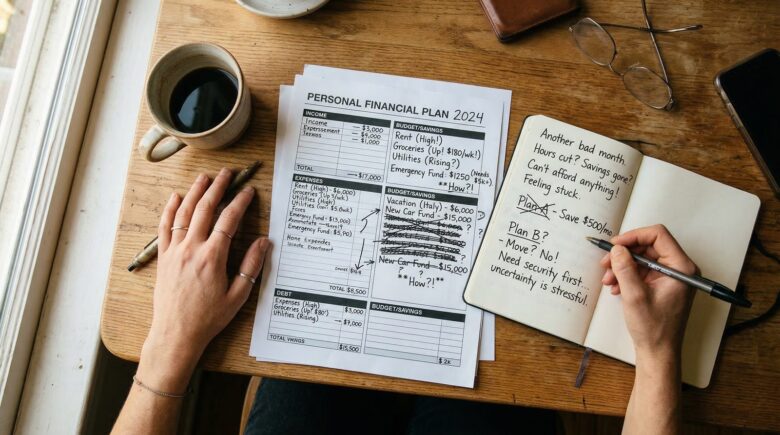 PERSONAL FINANCIAL PLAN 2024
INCOME
Income — $3,000
Expersement — $4,000
— $1,000
TOTAL — $17,000
EXPENSES
Rent (High) - $6,000
Groceries (Up!
Utilities
Emergency Fund - $13,000
Emergency Fund - $5,90
None Expendes
TOTAL $8,500
DEBT
Expenses (High) $3,000
Groceries (Up $80")
Utilities (Rising) — $9,000
TOTAL $15,500
BUDGET/SAVINGS
Rent (High!)
Groceries (Up! $180/wk!)
Utilities (Rising?)
Emergency Fund $1250 (Needs $5k+)
**How?!
BUDGET/SAVINGS
Vacation (Italy) - $6,000
New Car Fund - $15,000
New Car Fund - $15,000
? ? ?
**How?!
BUDGET/SAVINGS
$2k
Another bad month.
Hours cut? Savings gone?
Can't afford anything!
Feeling stuck.
Plan A - Save $500/mo.
Plan B?
- Move? No!
Need security first...
uncertainty is stressful.